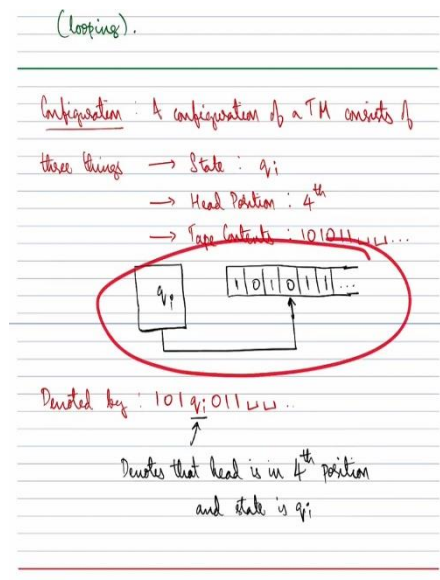 (looping).
Configuration : A configuration of a TM consists of
three things → State : qi
→ Head Position : 4th
→ Tape Contents : 101011␣␣␣...
qi 1 0 1 0 1 1 ...
Denoted by : 101qi011␣␣..
Denotes that head is in 4th position
and state is qi